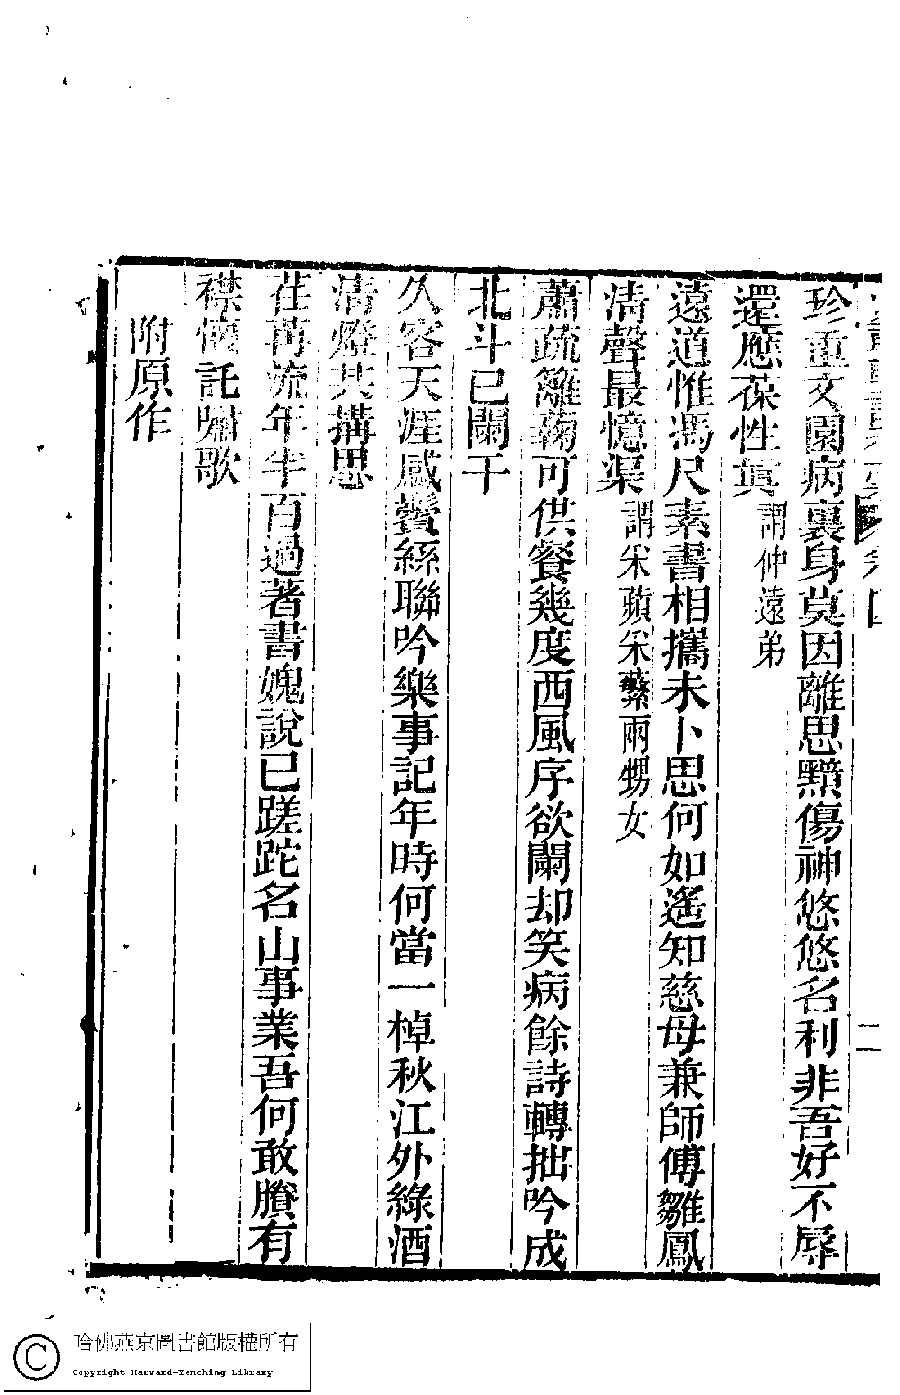 珍重文園病裏身莫因離思黯傷神悠悠名利非吾好不辱
還應葆性眞謂仲遠弟
遠道惟馮尺素書相攜未卜思何如遙知慈母兼師傅雛鳳
淸聲最憶渠謂采蘋采蘩兩甥女
蕭疏籬菊可供餐幾度西風序欲闌却笑病餘詩轉拙吟成
北斗已闌干
久客天涯感鬢絲聯吟樂事記年時何當一棹秋江外綠酒
淸燈共搆思
荏苒流年半百過著書媿說已蹉跎名山事業吾何敢賸有
襟懷託嘯歌
附原作
二
哈佛燕京圖書館版權所有
Copyright Harvard-Yenching Library